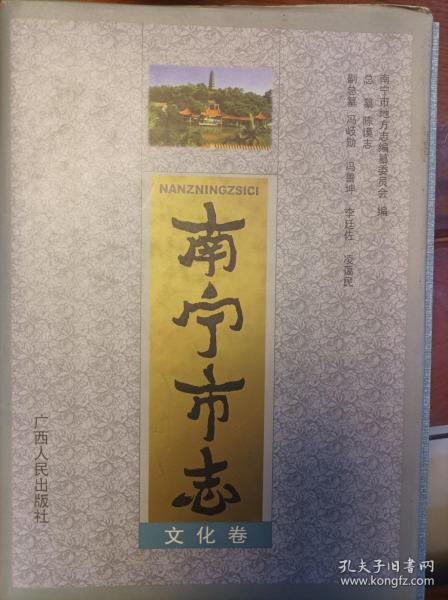 南宁市地方志编纂委员会 编
总 纂 陈谟志
副总纂 冯岐勋 冯善坤 李廷佐 凌谒民
NANZNINGZSICI
南宁市志
文化卷
广西人民出版社
孔夫子旧书网
www.kongfz.com